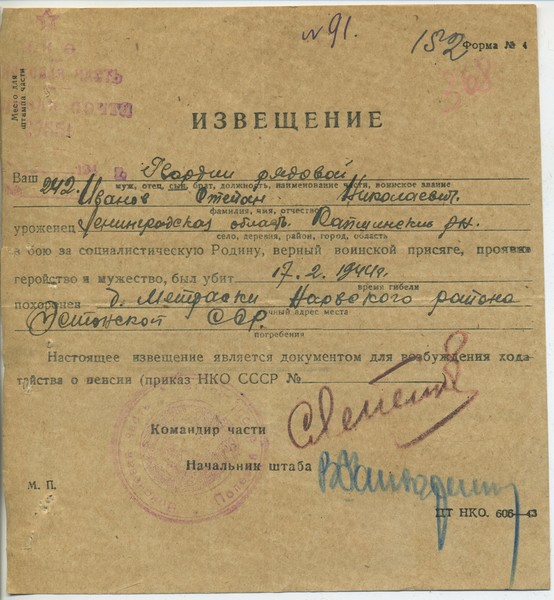 № 91.
152 Форма № 4
68
Место для
штампа части
ИЗВЕЩЕНИЕ
Ваш Гвардии рядовой
муж, отец, сын, брат, должность, наименование части, воинское звание
242. Иванов Степан Николаевич
фамилия, имя, отчество
уроженец Ленинградская область р-н.
село, деревня, район, город, область
в бою за социалистическую Родину, верный воинской присяге, проявив
геройство и мужество, был убит 17.2.1944 г.
время гибели
похоронен д. Нарвского района
Эстонской ССР.
чный адрес места
погребения
Настоящее извещение является документом для возбуждения хода
тайства о пенсии (приказ НКО СССР № )
Командир части
Начальник штаба
М. П.
ЦТ НКО. 606—43